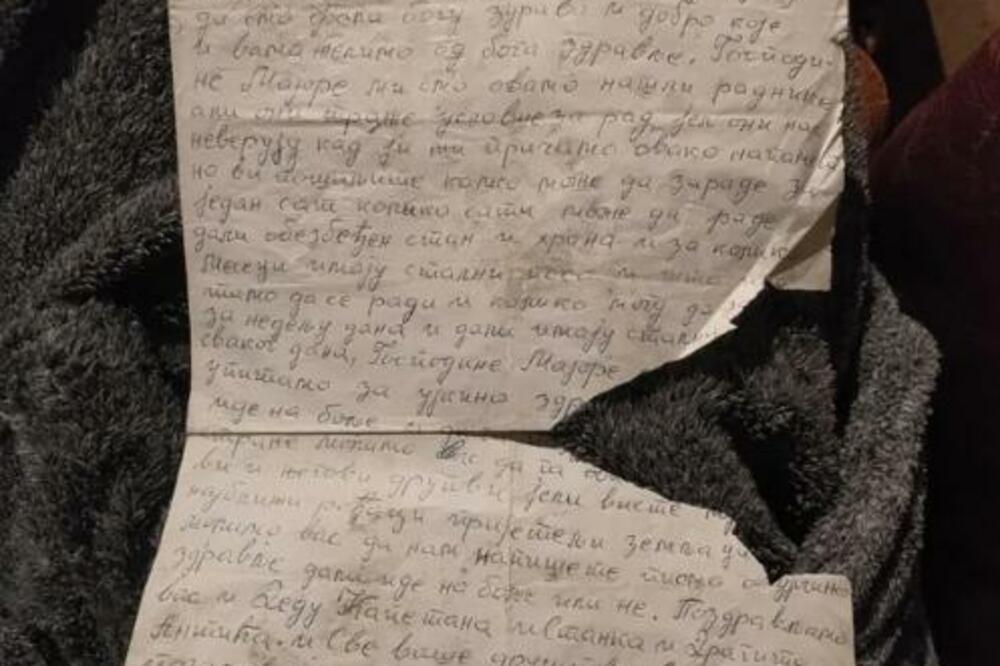 да смо фала богу здраво и добро које
и вама желимо од бога здравље. Господи-
не Мајоре ми смо овамо нашли раднике
али они траже услове за рад јел они нас
неверују кад ји ми причамо овако
но ви пошињите колко може да зараде за
један сат колико сати може да раде
дали обезбеђен стан и храна и за колко
Месеци имају стални и
тамо да се ради и колико могу да
за недељу дана и дали имају
сваког дана, Господине Мајоре
упитамо за ујкино
иде на боље
молимо да
ви и његови другови јели висте
најближи пријетељи земљаци
молимо вас да нам напишете писмо о ујкино
здравље дали иде на боље или не. Поздрављамо
вас и Деду Капетана и Станка и Драгишу
Антића. и Све ваше